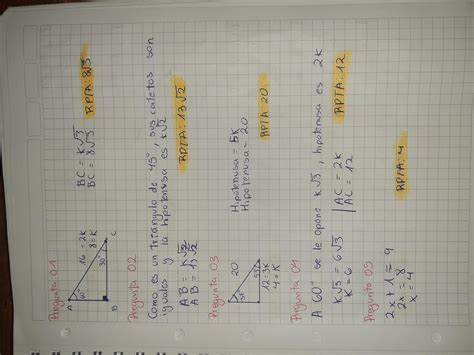 Pregunta 01
A
60°
16 = 2k
8 = k
30°
B
C
BC = k√3
BC = 8√3
RPTA: 8√3
Pregunta 02
Como es un triángulo de 45°, sus catetos son
iguales y la hipotenusa es k√2
AB = k√2
AB = 13√2
RPTA: 13√2
Pregunta 03
20
37°
53°
12 = 3k
4 = k
Hipotenusa = 5k
Hipotenusa = 20
RPTA: 20
Pregunta 04
A 60° se le opone k√3, hipotenusa es 2k
k√3 = 6√3
k = 6
AC = 2k
AC = 12
RPTA: 12
Pregunta 05
2x + 1 = 9
2x = 8
x = 4
RPTA: 4